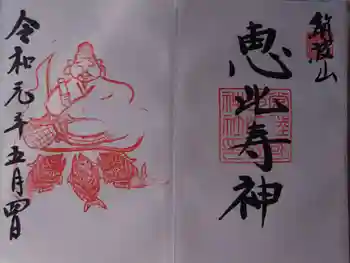 筑波山
恵比寿神
令和元年五月四日